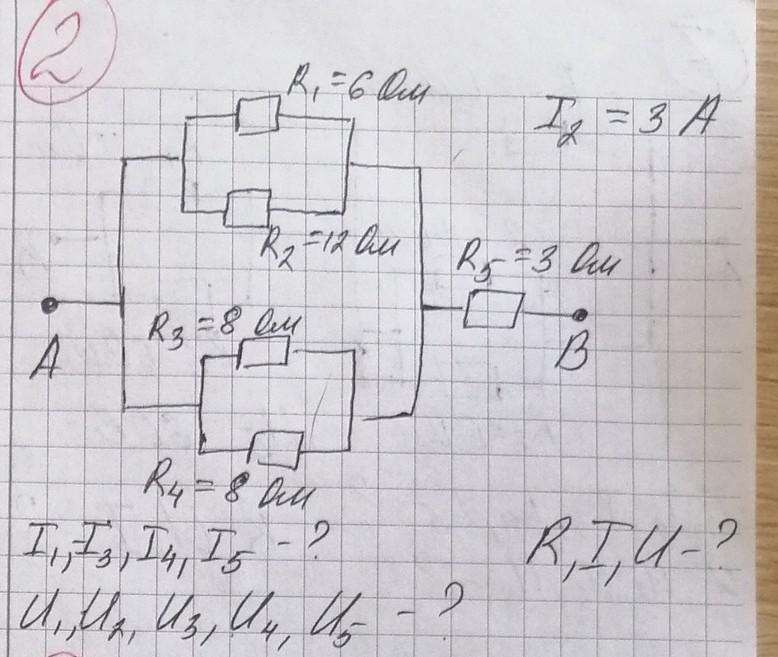 2
R₁=6 Ом
I₂ = 3 А
R₂=12 Ом
R₅=3 Ом
R₃=8 Ом
A
B
R₄=8 Ом
I₁, I₃, I₄, I₅ -?
R, I, U-?
U₁, U₂, U₃, U₄, U₅ -?